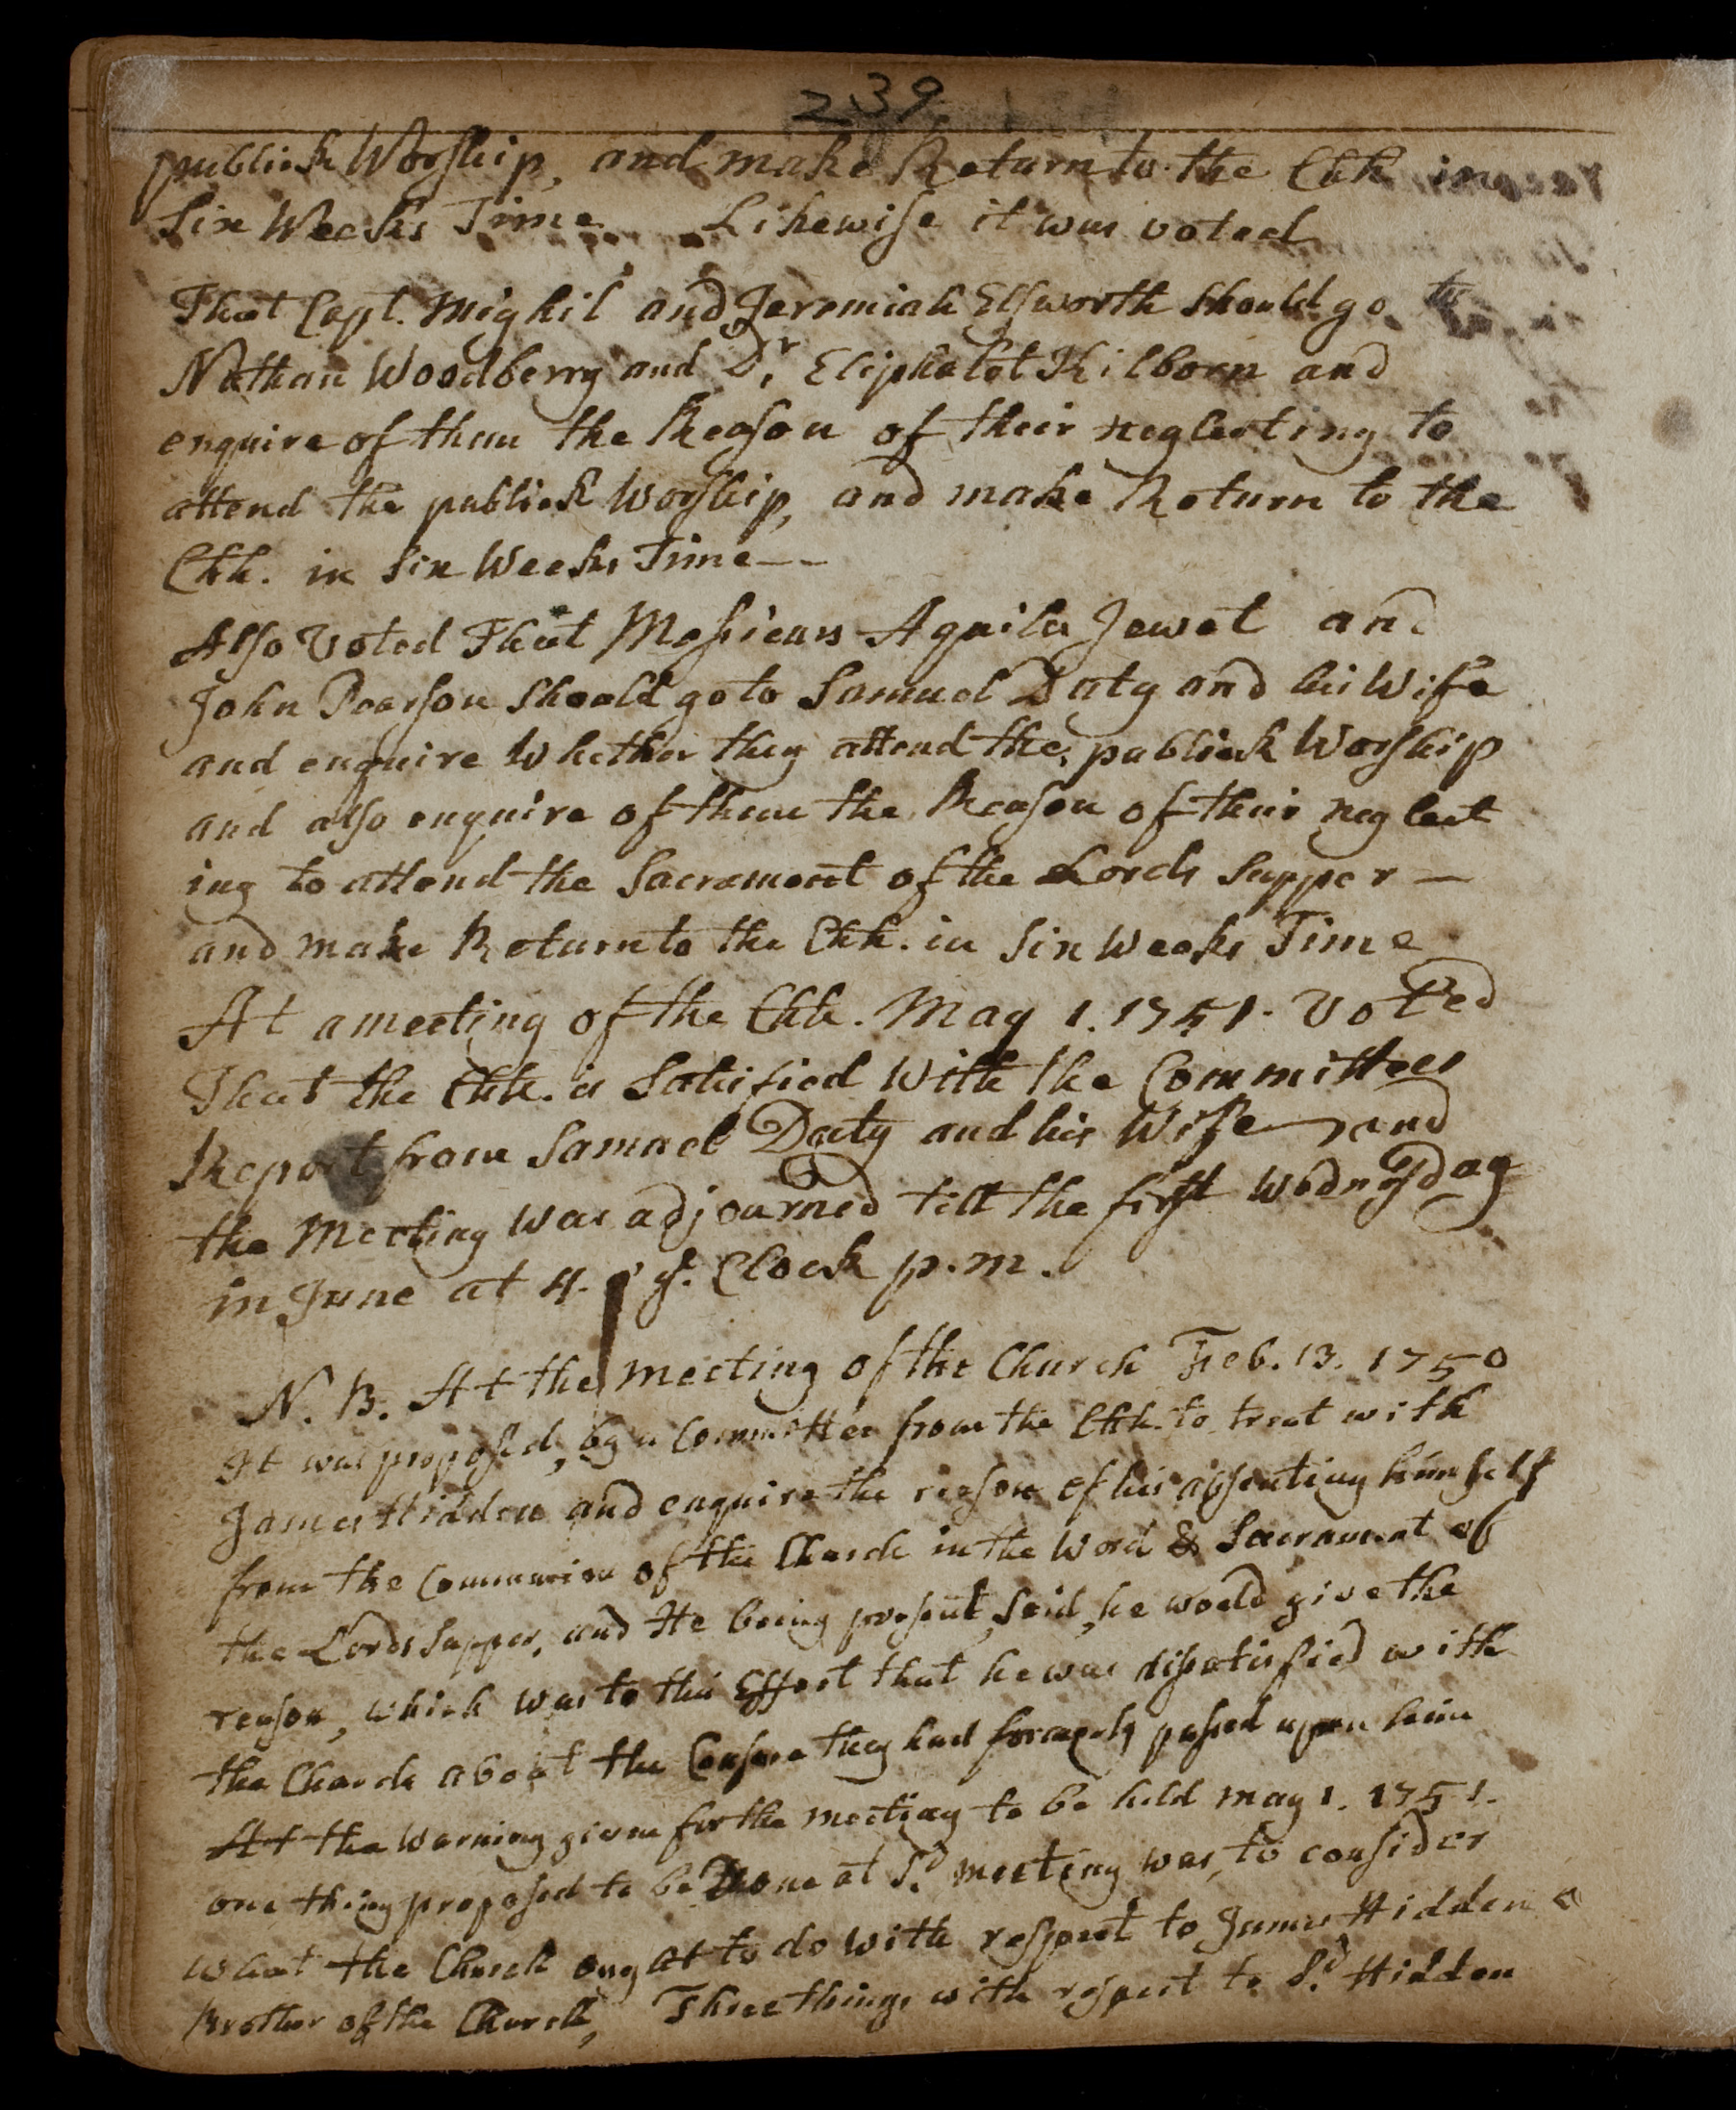 239
publick Worship, and make Return to the Chh in
Six Weeks Time. Likewise it was voted
That Capt. Mighil and Jeremiah Elsworth should go to
Nathan Woodberry and Dr. Eliphalet Kilborn and
enquire of them the Reason of their neglecting to
attend the publick Worship, and make Return to the
Chh. in Six Weeks Time--
Also Voted That Messieurs Aquila Jewet and
John Pearson should go to Samuel Duty and his Wife
and enquire whether they attend the publick Worship
and also enquire of them the Reason of their neglect
ing to attend the Sacrament of the Lords Supper —
and make Return to the Chh. in Six Weeks Time
At a meeting of the Chh. May 1. 1751. Voted
That the Chh. is Satisfied with the Committees
Report from Samuel Duty and his Wife and
the Meeting was adjourned till the first Wednesday
in June at 4. Clock p.m.
N. B. At the meeting of the Church Feb. 13. 1750
It was proposed, by a Committee from the Chh. to treat with
James Hidden and enquire the reason of his absenting himself
from the Communion of the Church in the Word & Sacrament of
the Lords Supper, and He being present, said, he would give the
reason, which was to this Effect that he was dissatisfied with
the Church about the Censure they had formerly passed upon him
At the Warning given for the meeting to be held may 1. 1751.
one thing proposed to be Done at Sd. meeting was, to consider
what the Church ought to do with respect to James Hidden a
Brother of the Church, Three things with respect to Sd. Hidden